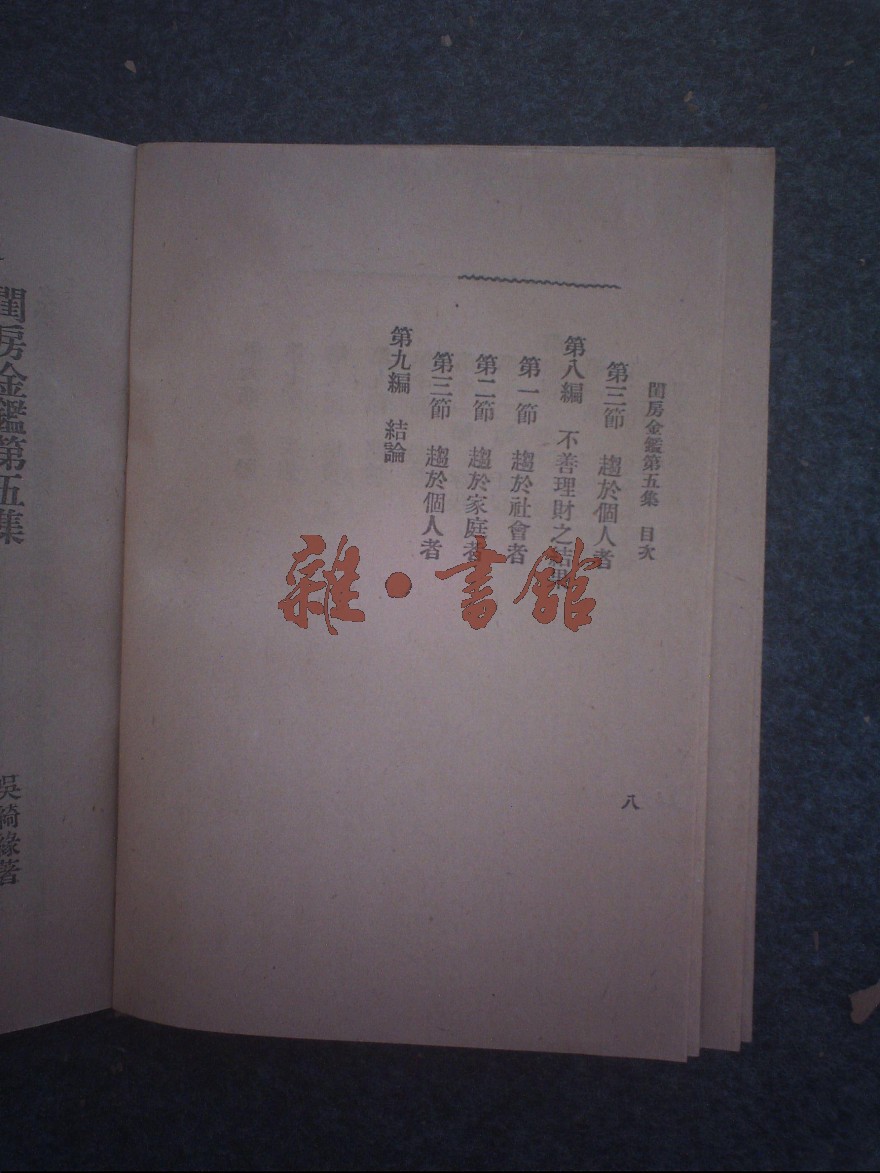 閨房金鑑第五集　目次
第三節　趨於個人者
第八編　不善理財之結果
第一節　趨於社會者
第二節　趨於家庭者
第三節　趨於個人者
第九編　結論
八
閨房金鑑第五集
吳綺緣著
雜·書館